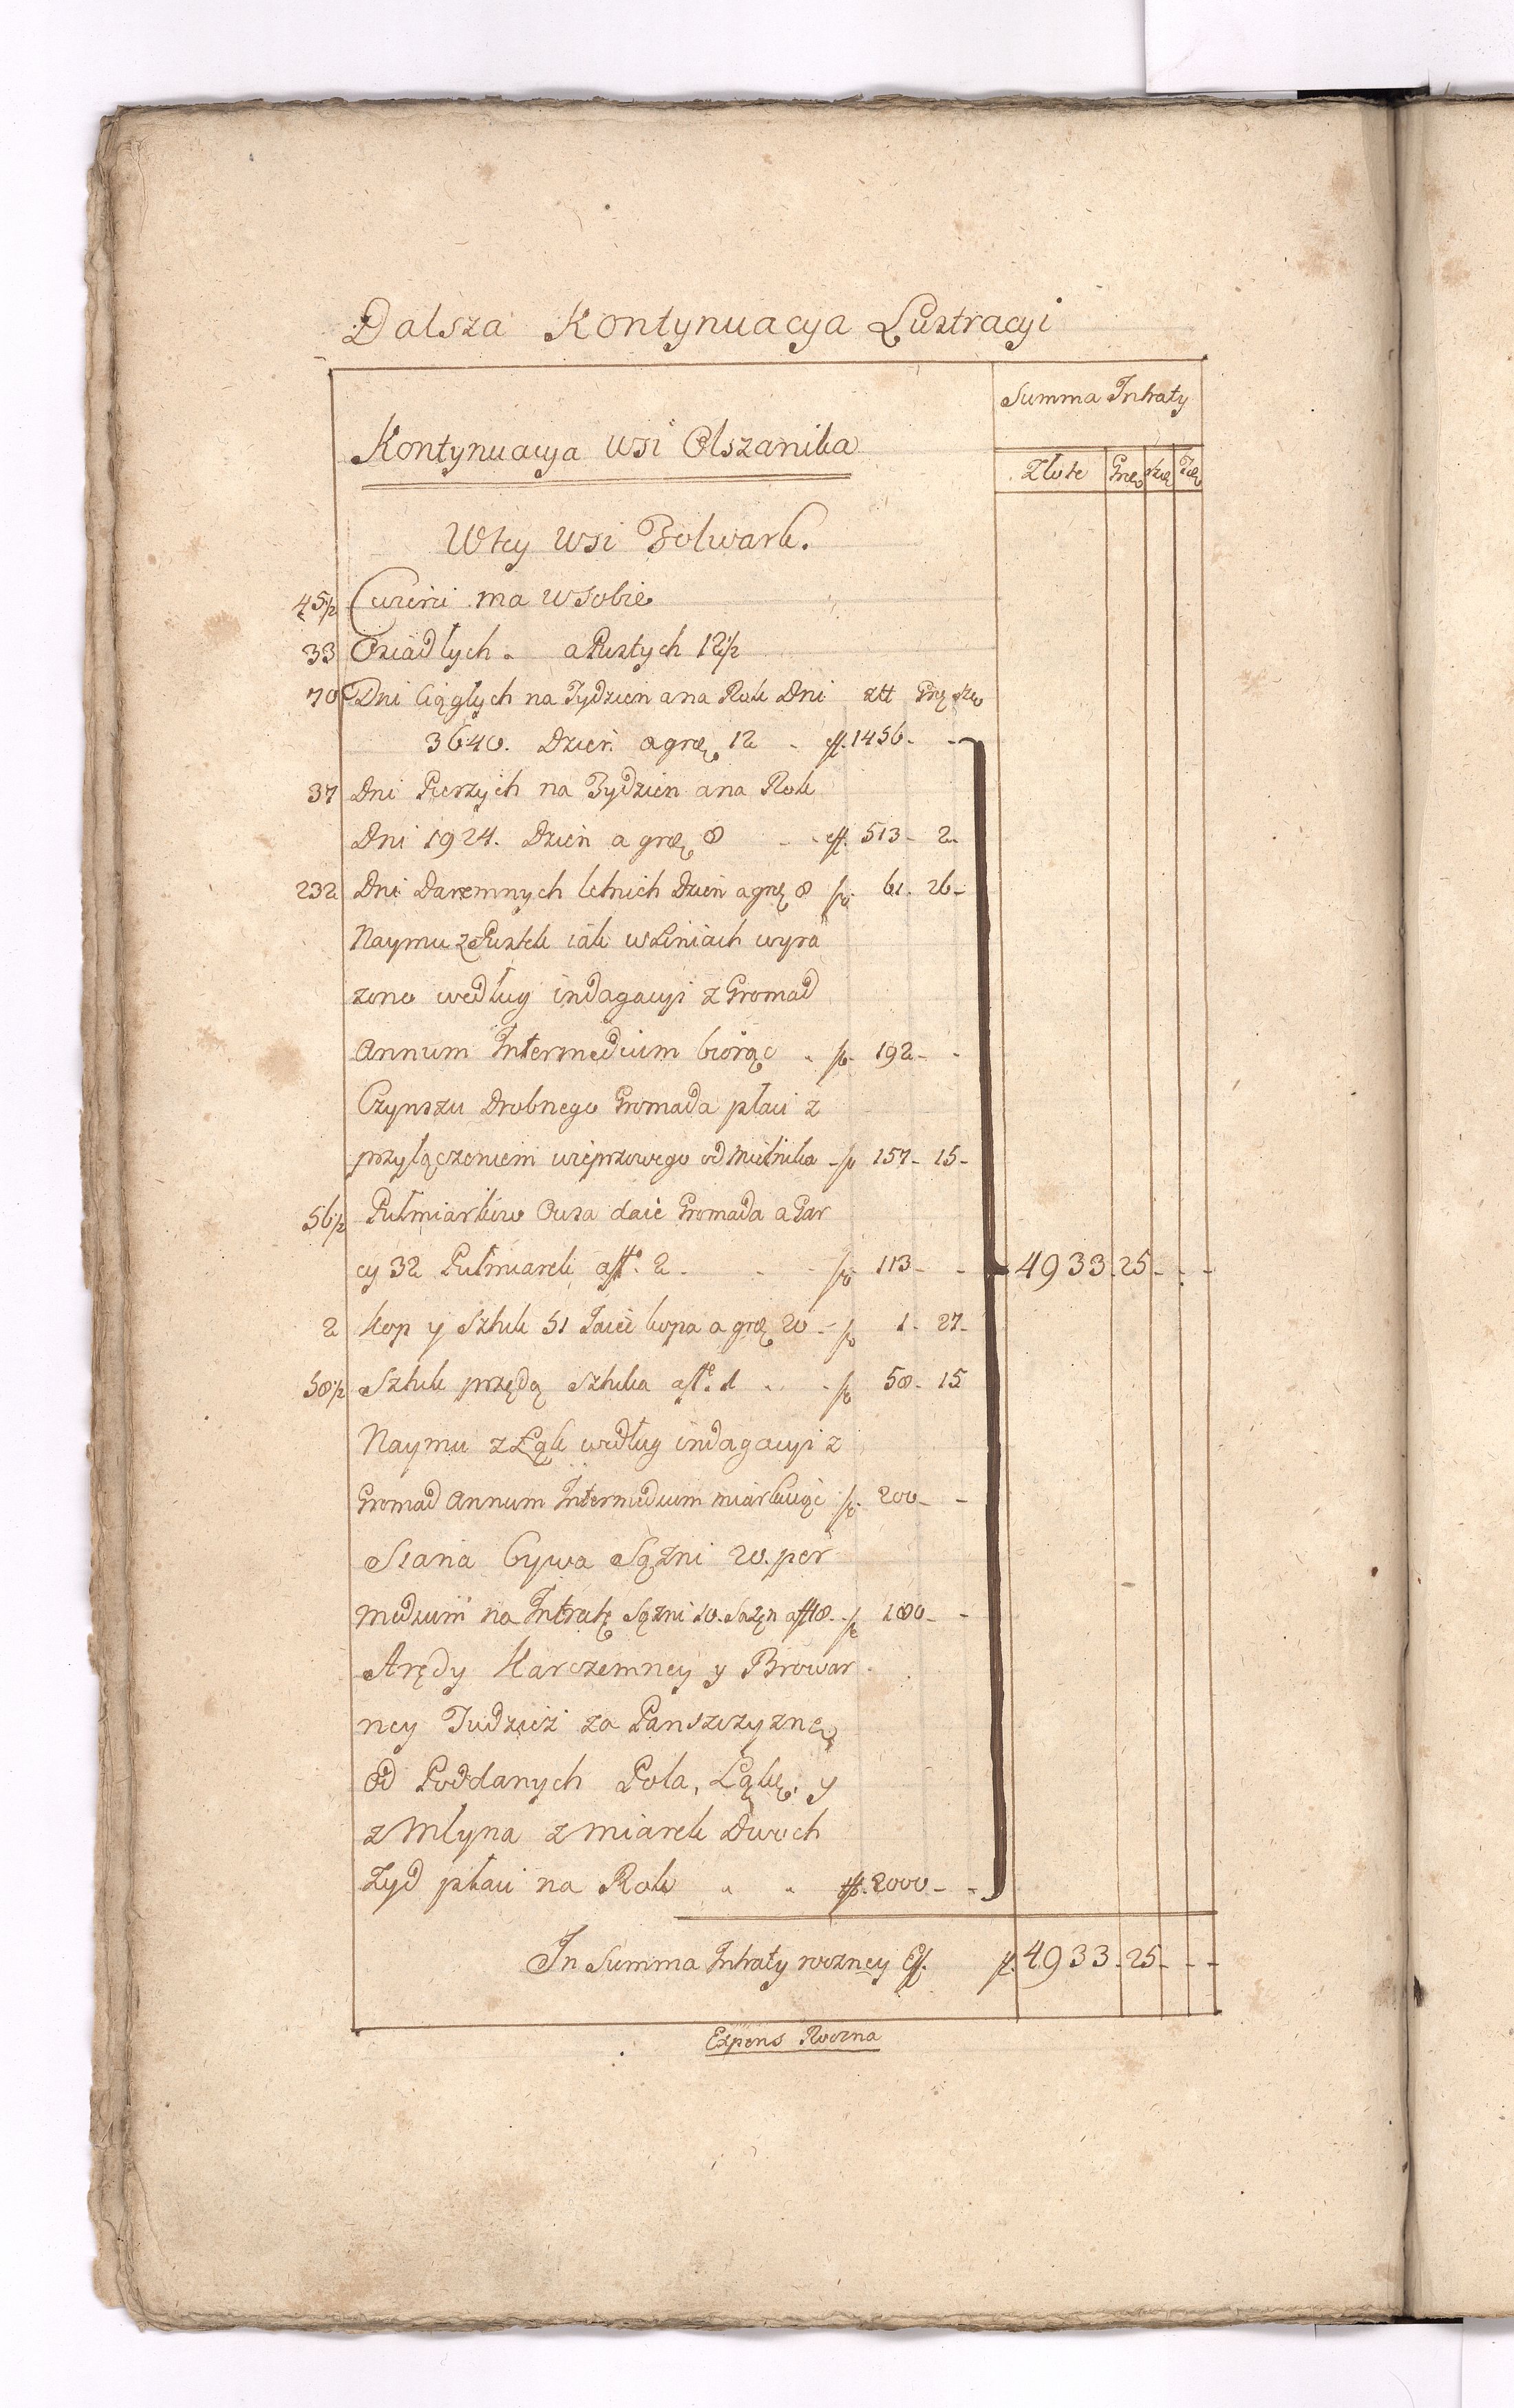 Dalsza Kontynuacya Lustracyi
Summa Intraty
Kontynuacya wsi Olszanika
Złote Grę Sze
W tey wsi Folwark.
45½ Cwierci ma w sobie
33 Osiadłych. a Pustych 12½
70 Dni Ciągłych na Tydzien a na Rok Dni złł Grę Sze
3640. Dzień a grę 12 - ff. 1456 - -
37 Dni Pieszych na Tydzien a na Rok
Dni 1924. Dzień a grę 8 - - ff. 513 - 2 -
232 Dni Daremnych letnich Dzień a grę 8 f. 61. 26 -
Naymu z Pustek iak w Liniach wyra
zono według indagacyi z Gromad
Annum Intermedium biorąc - f. 192 - -
Czynszu Drobnego Gromada płaci z
przyłączeniem wieprzowego od Mielnika - f 157 - 15 -
56½ Pułmiarków Owsa daie Gromada a Gar
cy 32 Pułmiarek aff. 2 - - - f 113 - - 4933 - 25 - - -
2 Kop y Sztuk 51 Jaiec kopa a grę 20 - f 1 - 27 -
58½ Sztuk przędą Sztuka aff. 1 - - f 58 - 15
Naymu z Łąk według indagacyi z
Gromad Annum Intermedium miarkuiąc f. 200 - -
Siana bywa Sążni 20. per
medium na Intratę Sążni 10. Sążn aff 18. - f 180 - -
Arędy Karczemney y Browar
ney Tudzież za Panszczyznę
od Poddanych Pola, Łąkę, y
z Młyna z miarek Dwoch
Żyd płaci na Rok - - ff. 2000 - -
In Summa Intraty roczney Eff. f. 4933 - 25 - - -
Expens Roczna